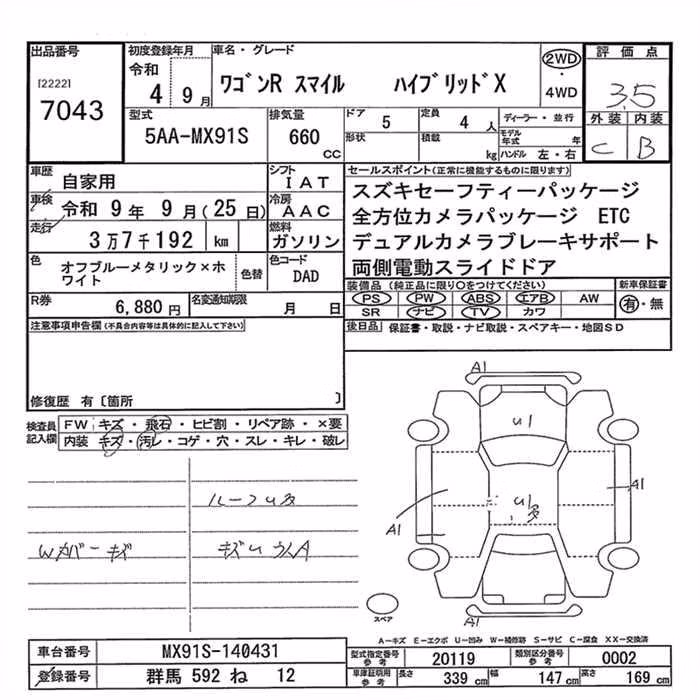 出品番号
[2222]
7043
初度登録年月
令和
4 9月
車名・グレード
ワゴンR スマイル ハイブリッドX
2WD
・
4WD
評価点
3.5
外装 内装
C B
型式
5AA-MX91S
排気量
660
cc
ドア
5
定員
4 人
形状
積載
kg
ディーラー・並行
モデル年式 年
ハンドル 左・右
車歴
自家用
シフト
IAT
車検
令和 9年 9月(25日)
冷房
AAC
走行
3万7千192 km
燃料
ガソリン
色
オフブルーメタリック×ホワイト
色替
色コード
DAD
R券
6,880円
名変通知期限
月 日
セールスポイント(正常に機能するものに限ります)
スズキセーフティーパッケージ
全方位カメラパッケージ ETC
デュアルカメラブレーキサポート
両側電動スライドドア
装備品(純正品に限り○をつけてください)
新車保証書
PS PW ABS エアB AW
SR ナビ TV カワ
有・無
後日品 保証書・取説・ナビ取説・スペアキー・地図SD
注意事項申告欄(不具合内容等は具体的に記入して下さい)
修復歴 有〔箇所 〕
検査員記入欄
FW キズ・飛石・ヒビ割・リペア跡・×要
内装 キズ・汚レ・コゲ・穴・スレ・キレ・破レ
ルーフU多
Wカバーキズ
A1
U1
U1
多
A1
A1
A1
スペア
A-キズ E-エクボ U-凹み W-補修跡 S-サビ C-腐食 XX-交換済
車台番号
MX91S-140431
登録番号
群馬 592 ね 12
型式指定番号
参考
20119
類別区分番号
参考
0002
車庫証明用
参考
長さ 339 cm
幅 147 cm
高さ 169 cm